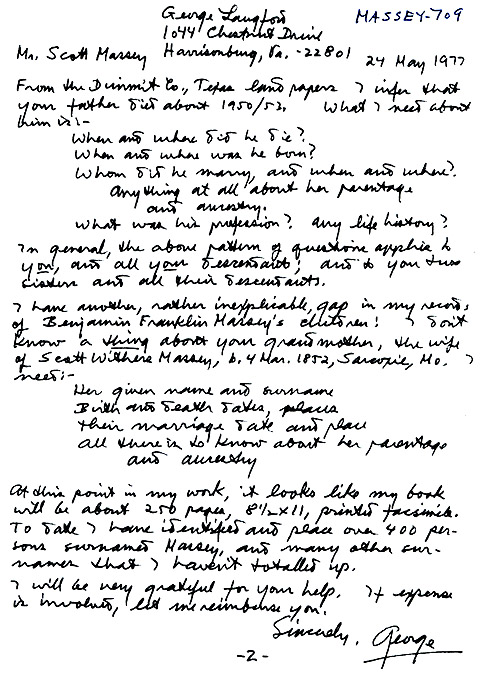 George Langford MASSEY-709
1044 Chestnut Drive
Harrisonburg, Va. -22801
Mr. Scott Massey 24 May 1977
From the Dimmit Co., Texas land papers I infer that
your father died about 1950/52. What I need about
him is:-
When and where did he die?
When and where was he born?
Whom did he marry, and when and where?
Anything at all about her parentage
and ancestry.
What was his profession? Any life history?
In general, the above pattern of questions applies to
you, and all your descendants; and to your two
sisters and all their descendants.
I have another, rather inexplicable, gap in my records
of Benjamin Franklin Massey's children! I don't
know a thing about your grandmother, the wife
of Scott Withers Massey, b. 4 Mar. 1852, Sarcoxie, Mo. I
need:-
Her given name and surname
Birth and death dates, places
Their marriage date and place
All there is to know about her parentage
and ancestry
At this point in my work, it looks like my book
will be about 250 pages, 8½x11, printed facsimile.
To date I have identified and place over 400 per-
sons surnamed Massey, and many other sur-
names that I haven't totalled up.
I will be very grateful for your help. If expense
is involved, let me reimburse you.
Sincerely, George
-2-